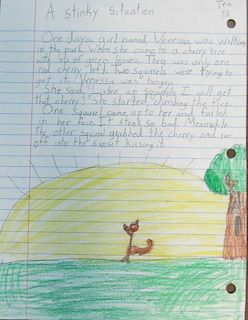 A Stinky Situation
One day a girl named Venessa was walking
in the park. When she came to a cherry tree
with lots of green leaves. There was only one
red cherry left. Two squirrels were trying to
get it. Venessa was hungry.
She said, Listen up squirrels I will get
that cherry! She started climbing the tree.
One squirrel came up to her and farted
in her face. It stank so bad. Meanwhile
the other squirrel grabbed the cherry and ran
off into the sunset kissing it.